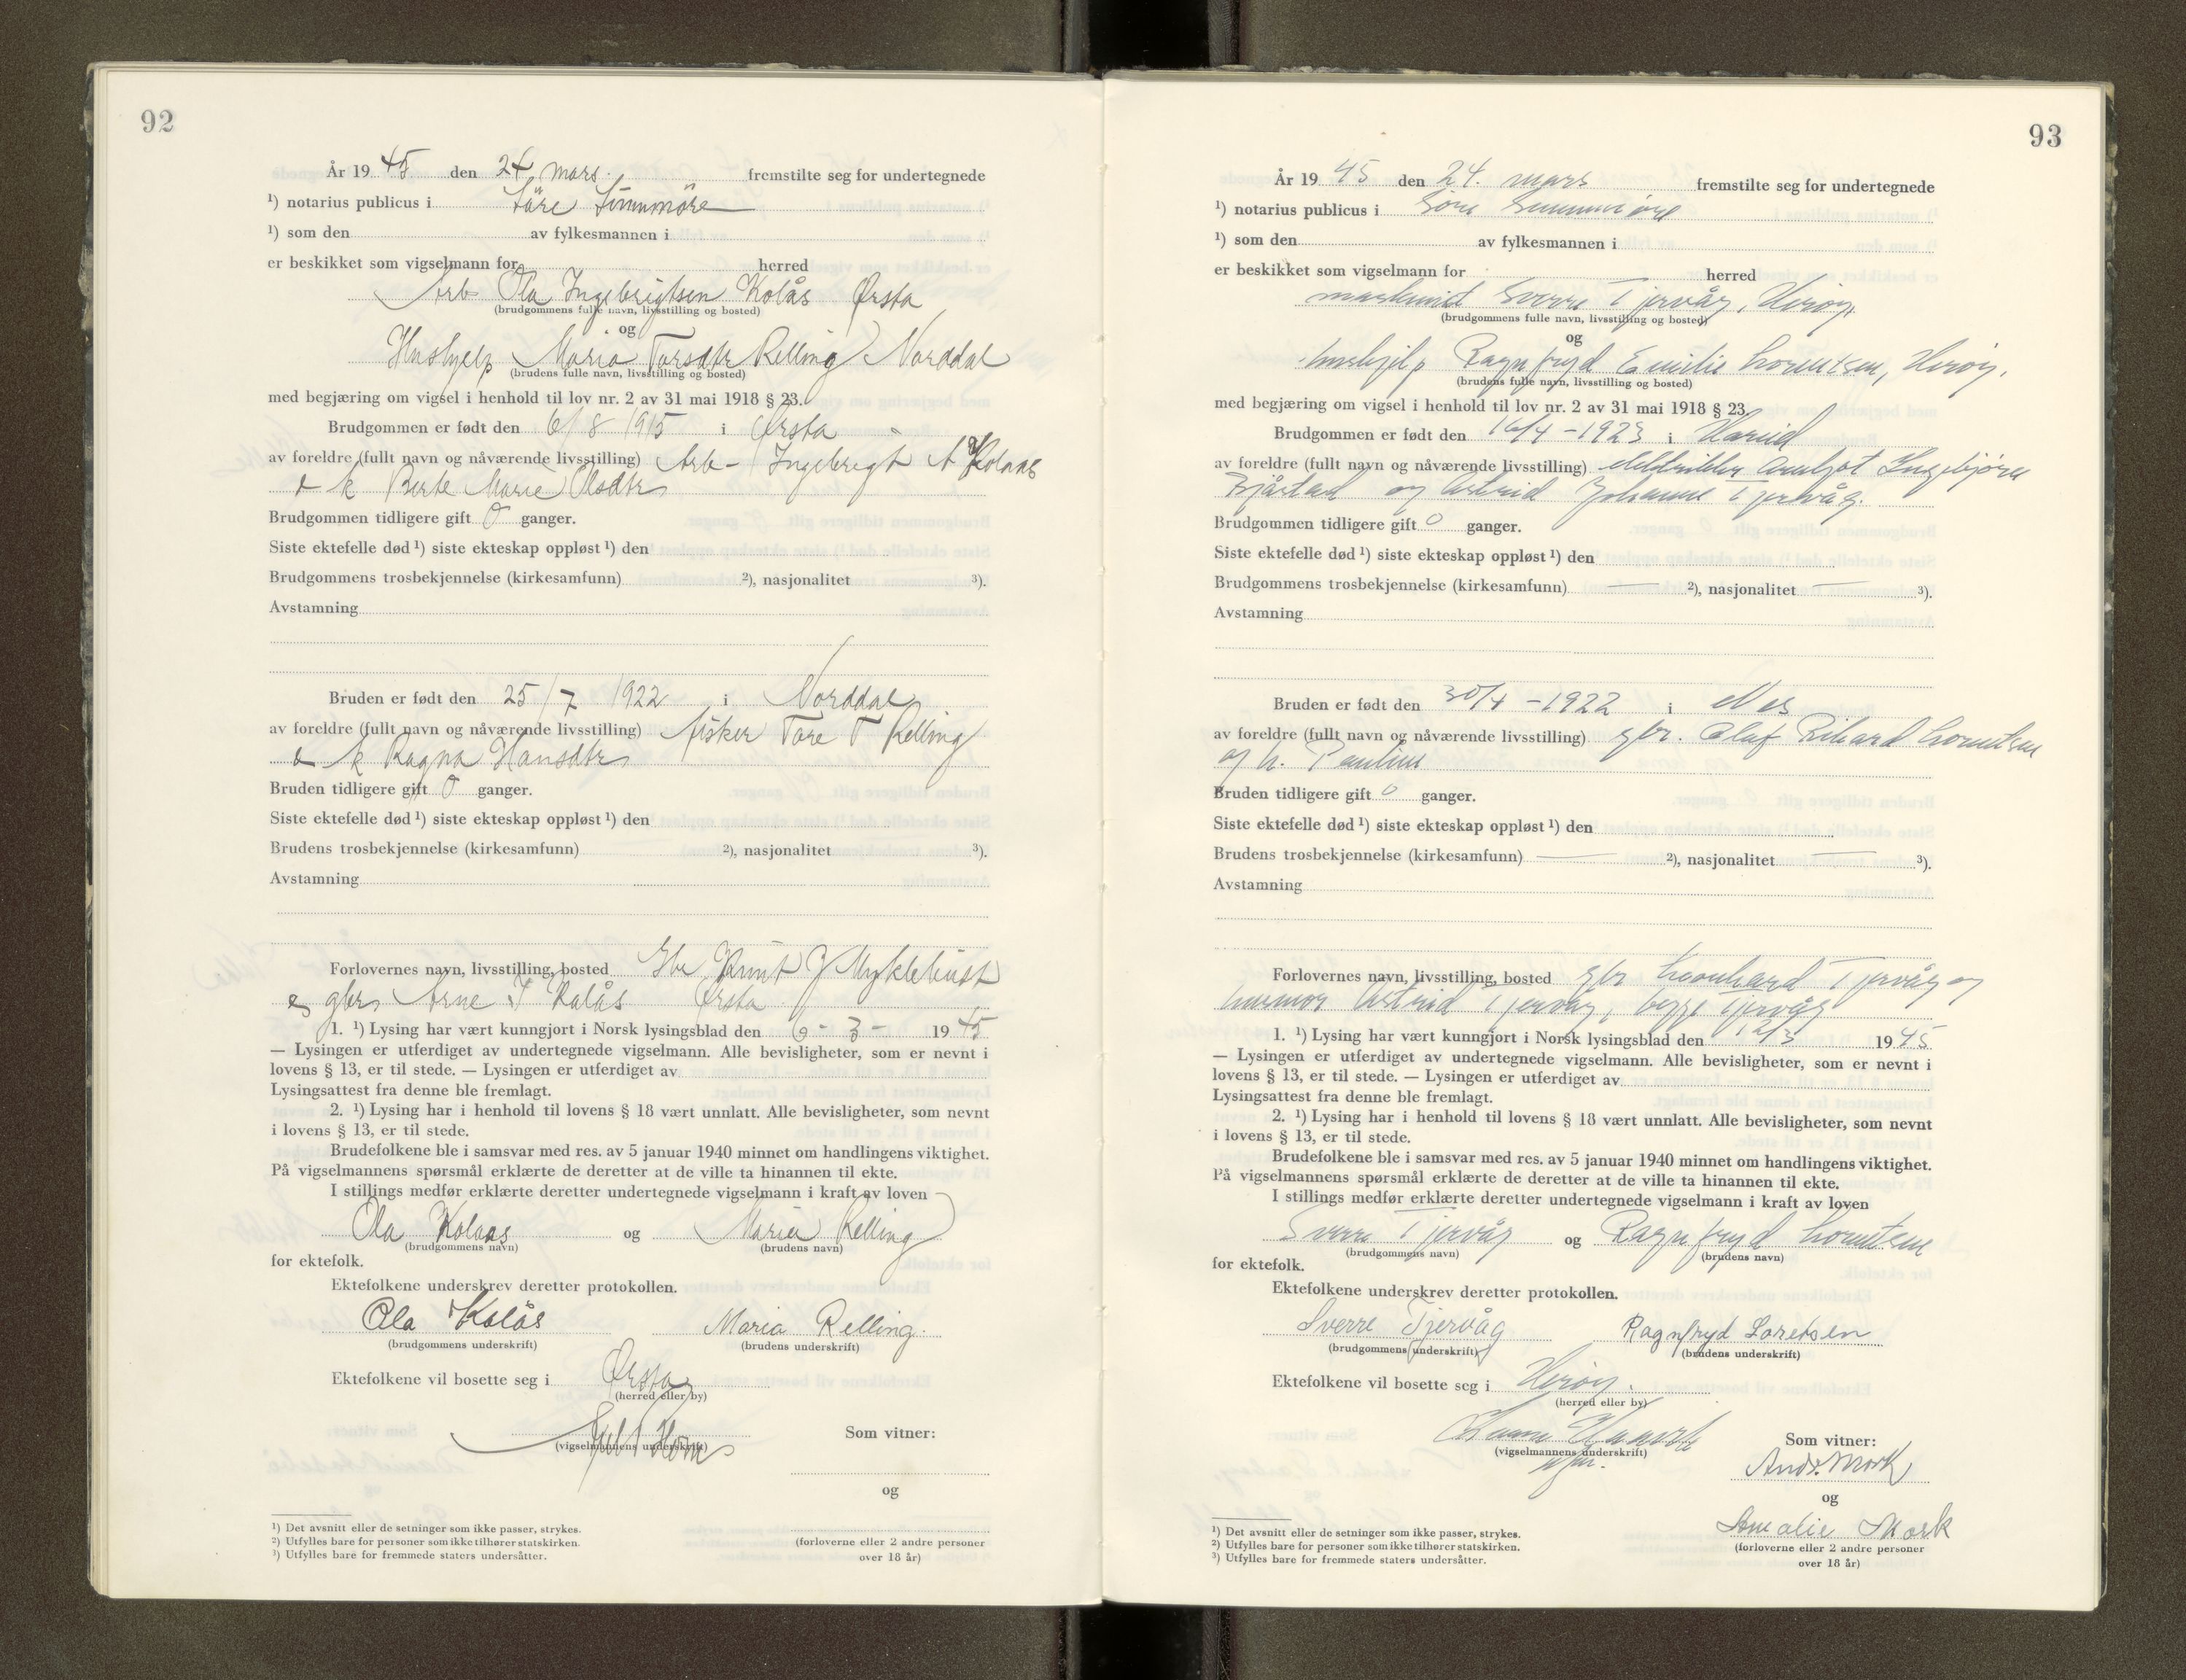 92
År 1945 den 24 mars. fremstilte seg for undertegnede
¹) notarius publicus i Söre Sunnmöre
¹) som den av fylkesmannen i
er beskikket som vigselmann for herred
Arb Ola Ingebrigtsen Kolås Ørsta
(brudgommens fulle navn, livsstilling og bosted)
og
Hushjelp Maria Taresdtr Relling Norddal
(brudens fulle navn, livsstilling og bosted)
med begjæring om vigsel i henhold til lov nr. 2 av 31 mai 1918 § 23.
Brudgommen er født den 6/8 1915 i Ørsta
av foreldre (fullt navn og nåværende livsstilling) Arb- Ingebrigt A Kolaas
o k Berte Marie Olsdtr
Brudgommen tidligere gift 0 ganger.
Siste ektefelle død ¹) siste ekteskap oppløst ¹) den
Brudgommens trosbekjennelse (kirkesamfunn) ²), nasjonalitet ³).
Avstamning
Bruden er født den 25/7 1922 i Norddal
av foreldre (fullt navn og nåværende livsstilling) fisker Tore T Relling
o k Ragna Hansdtr
Bruden tidligere gift 0 ganger.
Siste ektefelle død ¹) siste ekteskap oppløst ¹) den
Brudens trosbekjennelse (kirkesamfunn) ²), nasjonalitet ³).
Avstamning
Forlovernes navn, livsstilling, bosted Gbr Knut J Myklebust
og gbr Arne I Kolås Ørsta
1. ¹) Lysing har vært kunngjort i Norsk lysingsblad den 6 - 3 - 1945
— Lysingen er utferdiget av undertegnede vigselmann. Alle bevisligheter, som er nevnt i
lovens § 13, er til stede. — Lysingen er utferdiget av
Lysingsattest fra denne ble fremlagt.
2. ¹) Lysing har i henhold til lovens § 18 vært unnlatt. Alle bevisligheter, som nevnt
i lovens § 13, er til stede.
Brudefolkene ble i samsvar med res. av 5 januar 1940 minnet om handlingens viktighet.
På vigselmannens spørsmål erklærte de deretter at de ville ta hinannen til ekte.
I stillings medfør erklærte deretter undertegnede vigselmann i kraft av loven
Ola Kolaas og Maria Relling
(brudgommens navn) (brudens navn)
for ektefolk.
Ektefolkene underskrev deretter protokollen.
Ola Kolås Maria Relling.
(brudgommens underskrift) (brudens underskrift)
Ektefolkene vil bosette seg i Ørsta
(herred eller by)
(vigselmannens underskrift)
Som vitner:
og
(forloverne eller 2 andre personer
over 18 år)
¹) Det avsnitt eller de setninger som ikke passer, strykes.
²) Utfylles bare for personer som ikke tilhører statskirken.
³) Utfylles bare for fremmede staters undersåtter.
93
År 1945 den 24. mars fremstilte seg for undertegnede
¹) notarius publicus i Söre Sunnmöre
¹) som den av fylkesmannen i
er beskikket som vigselmann for herred
maskinist Sverre Tjervåg, Herøy,
(brudgommens fulle navn, livsstilling og bosted)
og
hushjelp Ragnfryd Emilie Lorentsen, Herøy.
(brudens fulle navn, livsstilling og bosted)
med begjæring om vigsel i henhold til lov nr. 2 av 31 mai 1918 § 23.
Brudgommen er født den 16/4 - 1923 i Hareid
av foreldre (fullt navn og nåværende livsstilling) Arnljot Ingebjørn
Bjåstad og Astrid Johanne Tjervåg.
Brudgommen tidligere gift 0 ganger.
Siste ektefelle død ¹) siste ekteskap oppløst ¹) den
Brudgommens trosbekjennelse (kirkesamfunn) — ²), nasjonalitet — ³).
Avstamning
Bruden er født den 30/4 - 1922 i Nes
av foreldre (fullt navn og nåværende livsstilling) gbr. Olaf Rikard Lorentsen
og h. Pauline
Bruden tidligere gift 0 ganger.
Siste ektefelle død ¹) siste ekteskap oppløst ¹) den
Brudens trosbekjennelse (kirkesamfunn) — ²), nasjonalitet — ³).
Avstamning
Forlovernes navn, livsstilling, bosted gbr Leonhard Tjervåg og
husmor Astrid Tjervåg, begge Tjervåg
1. ¹) Lysing har vært kunngjort i Norsk lysingsblad den 12/3 1945
— Lysingen er utferdiget av undertegnede vigselmann. Alle bevisligheter, som er nevnt i
lovens § 13, er til stede. — Lysingen er utferdiget av
Lysingsattest fra denne ble fremlagt.
2. ¹) Lysing har i henhold til lovens § 18 vært unnlatt. Alle bevisligheter, som nevnt
i lovens § 13, er til stede.
Brudefolkene ble i samsvar med res. av 5 januar 1940 minnet om handlingens viktighet.
På vigselmannens spørsmål erklærte de deretter at de ville ta hinannen til ekte.
I stillings medfør erklærte deretter undertegnede vigselmann i kraft av loven
Sverre Tjervåg og Ragnfryd Lorentsen
(brudgommens navn) (brudens navn)
for ektefolk.
Ektefolkene underskrev deretter protokollen.
Sverre Tjervåg Ragnfryd Loretsen
(brudgommens underskrift) (brudens underskrift)
Ektefolkene vil bosette seg i Herøy.
(herred eller by)
(vigselmannens underskrift)
Som vitner:
Andr. Mork
og
Amalie Mork
(forloverne eller 2 andre personer
over 18 år)
¹) Det avsnitt eller de setninger som ikke passer, strykes.
²) Utfylles bare for personer som ikke tilhører statskirken.
³) Utfylles bare for fremmede staters undersåtter.